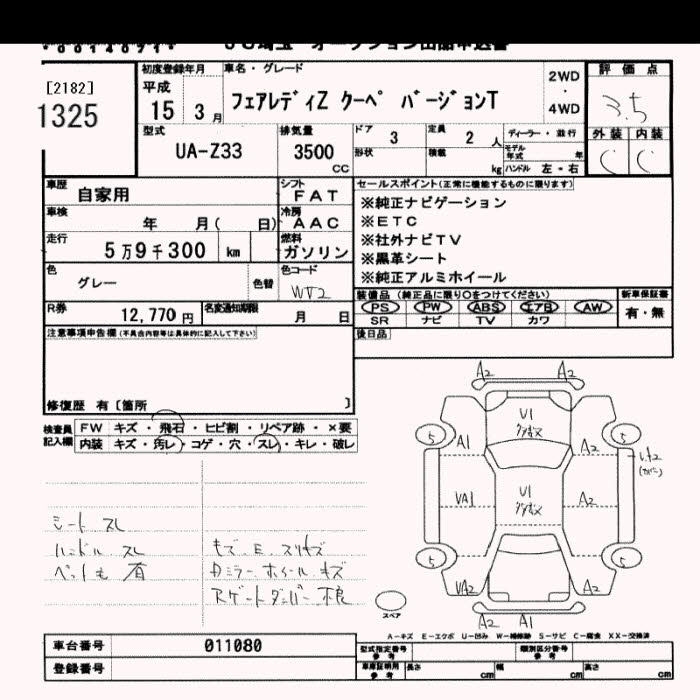 [2182]
1325
初度登録年月
平成
15 3月
車名・グレード
フェアレディZ クーペ バージョンT
2WD
・
4WD
評価点
3.5
型式
UA-Z33
排気量
3500
CC
ドア
3
定員
2
人
ディーラー・並行
形状
積載
kg
モデル年式
年
ハンドル 左・右
外装 内装
C C
車歴
自家用
シフト
FAT
車検
年 月( 日)
冷房
AAC
走行
5万9千300 km
燃料
ガソリン
色
グレー
色替
色コード
WV2
R券
12,770円
名変通知期限
月 日
セールスポイント(正常に機能するものに限ります)
※純正ナビゲーション
※ETC
※社外ナビTV
※黒革シート
※純正アルミホイール
装備品(純正品に限り○をつけてください)
PS PW ABS エアB AW
SR ナビ TV カワ
新車保証書
有・無
後日品
注意事項申告欄(不具合内容等は具体的に記入して下さい)
修復歴 有〔箇所 〕
検査員
記入欄
FW キズ・飛石・ヒビ割・リペア跡・×要
内装 キズ・汚レ・コゲ・穴・スレ・キレ・破レ
シート スレ
ハンドル スレ
ペットも 有
A2 A2
U1
5 5
A1 A2
VA1
U1
A2
5 5
VA2 A2
A2 A1
スペア
A-キズ E-エクボ U-凹み W-補修跡 S-サビ C-腐食 XX-交換済
車台番号
011080
登録番号
型式指定番号
参考
類別区分番号
参考
車庫証明用
参考
長さ
cm
幅
cm
高さ
cm